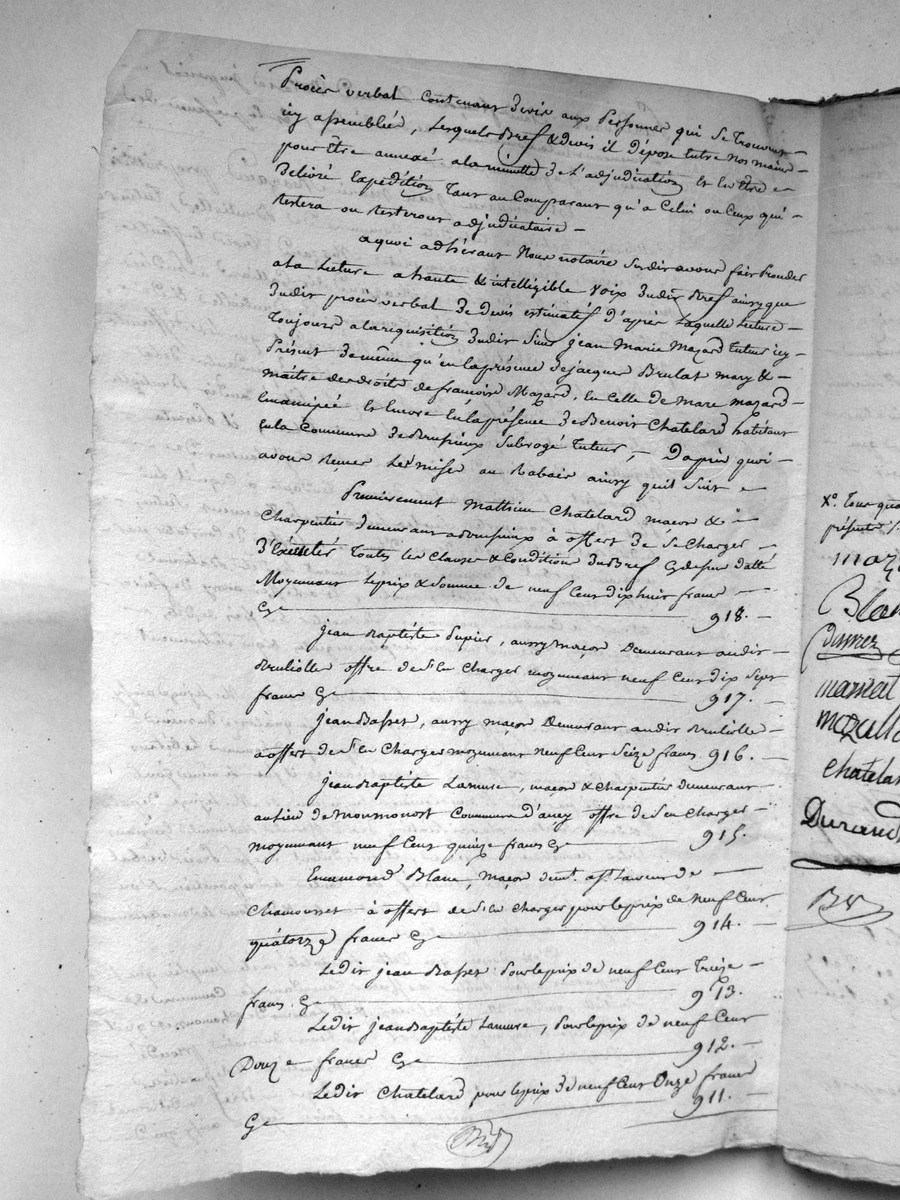 Procès verbal Contenant Devis aux Personnes qui se trouvent
icy assemblées, Lesquels Bref & devis il dépose entre nos mains
pour être annexé a la minutte De L'adjudication Et En être
Délivré Expedition Tant au Comparant qu'a Celui ou Ceux qui
restera ou resteront adjudicataire
a quoi adhérant Nous notaire Susdit avons fait Proceder
a La Lecture a haute & intelligible voix Dudit Bref ainsy que
Dudit procès verbal De devis estimatif D'après Laquelle Lecture
Toujours a la requisition Dudit Sieur Jean Marie Mazard tuteur icy
Présent De même qu'en la présence de jacques Brulat mary &
maitre des droits de francoise Mazard, En Celle de Marc mazard
Emancipée Et Encore En la présence De Benoit Chatelard habitant
En la Commune De Brussieux Subrogé tuteur, D'après quoi
avons reçues Les mises au Rabais ainsy quil Suit
Premierement Mathieu Chatelard maçon &
Charpentier demeurant a Brussieux à offert De Se Charger
D'Exécuter Toutes les Clauses & Condition Du Bref Cy dessus datté
Moyennant Le prix & Somme de neuf Cent dix huit francs
Cy 918.
Jean Baptiste Pupier, aussy maçon Demeurant audit
Brulliolle offre de S'en Charger moyennant neuf Cent dix Sept
francs Cy 917.
Jean Basset, aussy maçon Demeurant audit Brulliolle
a offert de S'en Charger moyennant Neuf Cent Seize francs 916.
Jean Baptiste Lamure, maçon & Charpentier demeurant
au lieu de Monmonost Commune D'ancy offre de S'en Charger
moyennant neuf Cent quinze francs Cy 915.
Ennemond Blanc, maçon demt. a St. Laurent de
Chamousset à offert de S'en Charger pour le prix de Neuf Cent
quatorze francs Cy 914.
Ledit Jean Basset pour le prix de neuf Cent Treize
francs Cy 913.
Ledit Jean Baptiste Lamure, pour le prix de neuf Cent
Douze francs Cy 912.
Ledit Chatelard pour le prix De neuf Cent Onze francs
Cy 911.
Xº. Tous quo
présente
maza
Blan
mazall
Chatelar
Durand